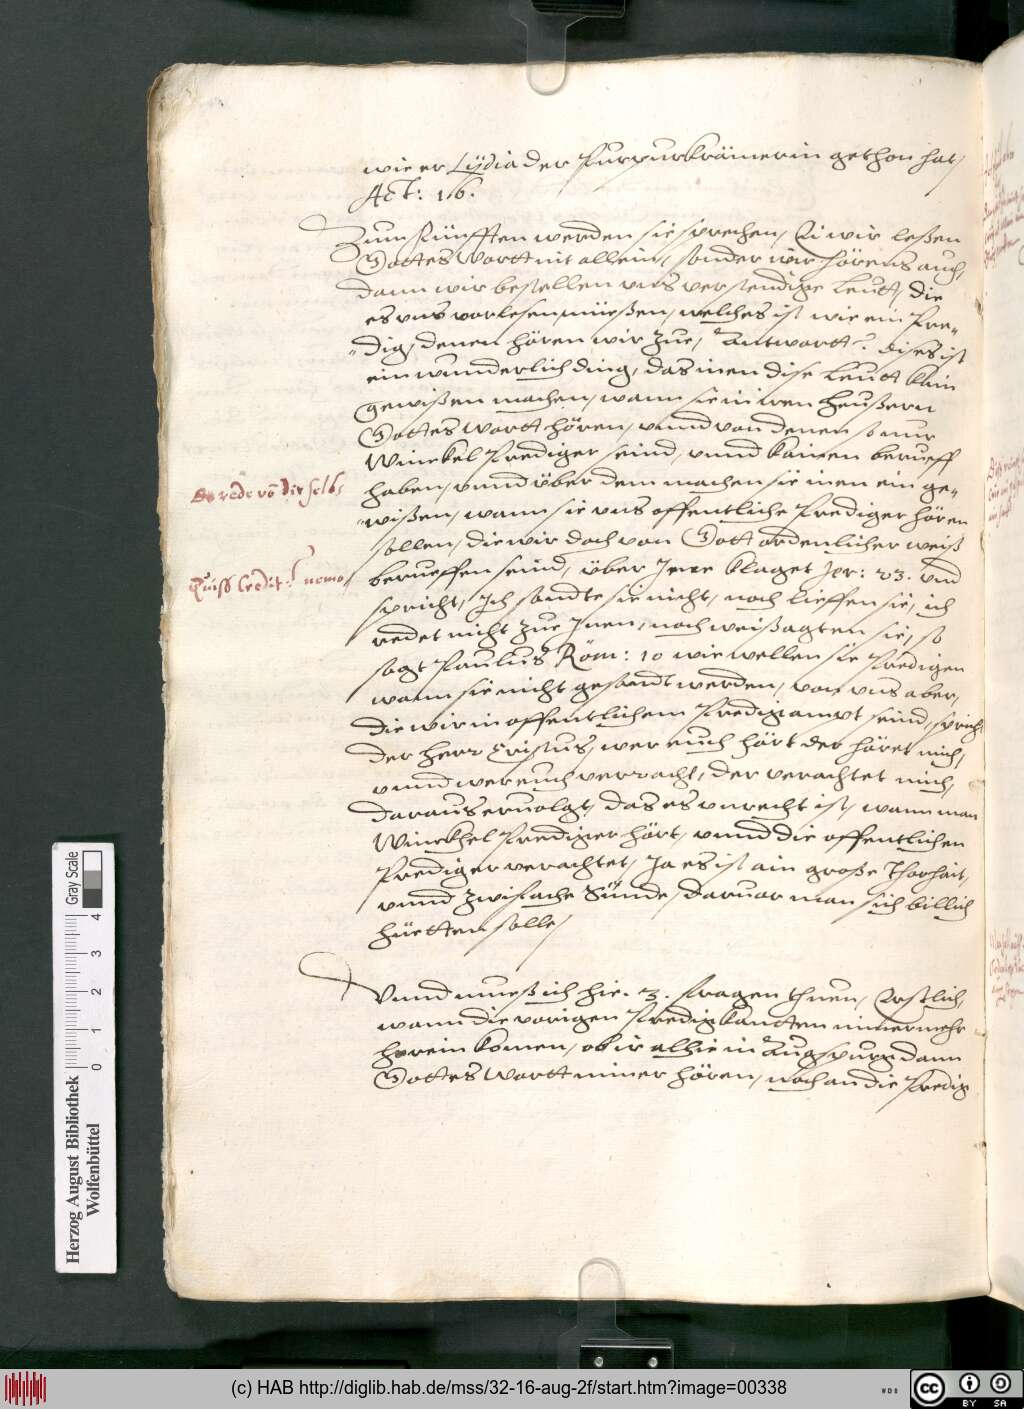 wie er Lÿdia der Purpurkrämerin gethon hat,
Act: 16.
Zum Fünfften werden sie sprechen, Ei wir leßen
Gottes Wortt nit allein, sonder wir hörens auch,
dann wir bestellen uns verstendige Leutt, die
es uns vorlesen mießen, welches ist wie ein Pre=
=dig, denen hören wir zue, Antwortt? dises ist
ein wunderlich ding, das inen dise Leutt kain
gewißen machen, wann sie in iren Heußern
Gottes Wortt hören, unnd von denen so nur
Winckel Prediger seind, unnd kainen berueff
haben, unnd über dem machen sie inen ein ge=
=wißen, wann sie uns offentliche Prediger hören
sollen, die wir doch von Gott ordenlicher weiß
berueffen seind, über Jene klaget Jer: 23. und
spricht, Ich sandte sie nicht, noch lieffen sie, ich
redet nicht zue Inen, noch weißagten sie, so
sagt Paulus Röm: 10 wie wellen sie Predigen
wann sie nicht gesandt werden, von uns aber,
die wir in offentlichem Predigampt seind, spricht
der Herr Cristus, wer euch hört der höret mich,
unnd wer euch verracht, der verachtet mich,
daraus ervolgt, das es unrecht ist, wann man
Winckhel Prediger hört, unnd die offentlichen
Prediger verachtet, Ja es ist ain große Thorhait,
unnd zwifache Sünde, daruor man sich billich
hüetten solle,
Unnd mueß ich hie. 3. Fragen thuen, Erstlich,
wann die vorigen Predigkanten nimermehr
herein komen, ob ir alhie in Augspurg dann
Gottes Wortt nimer hören, noch an die Predig
Do rede vo dir selbs
Quiss Credit? nemo
Herzog August Bibliothek
Wolfenbüttel
0 1 2 3 4
Gray Scale
(c) HAB http://diglib.hab.de/mss/32-16-aug-2f/start.htm?image=00338
WDB
CC BY SA